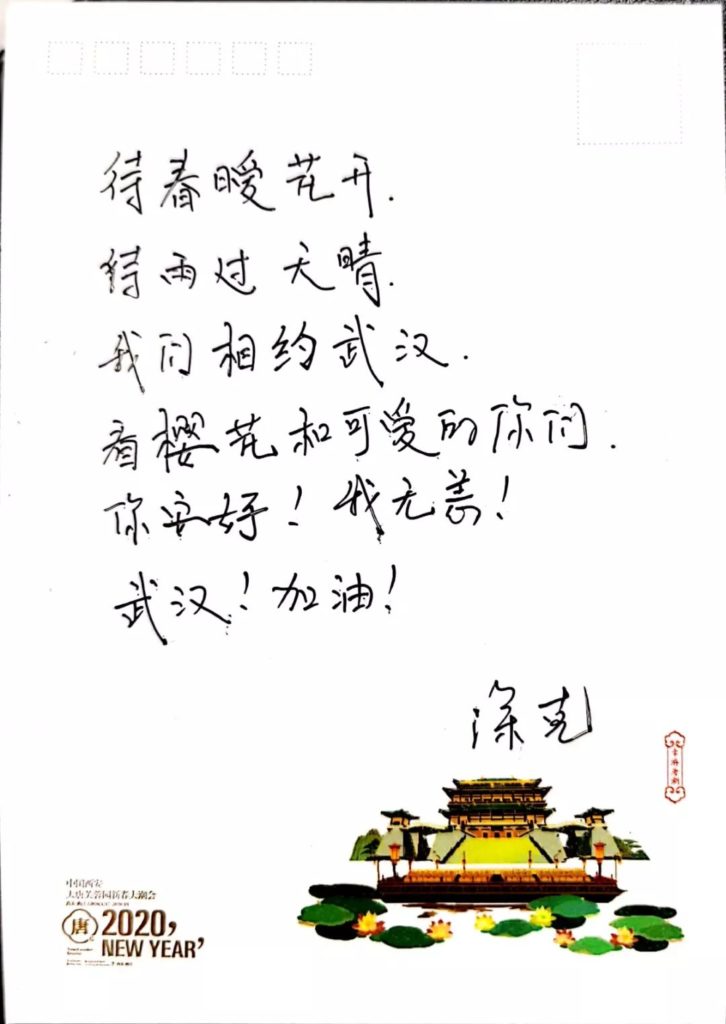 待春暖花开.
待雨过天晴.
我们相约武汉.
看樱花和可爱的你们.
你安好！我无恙！
武汉！加油！
深克
中国西安
大唐芙蓉园新春大潮会
唐
2020,
NEW YEAR’